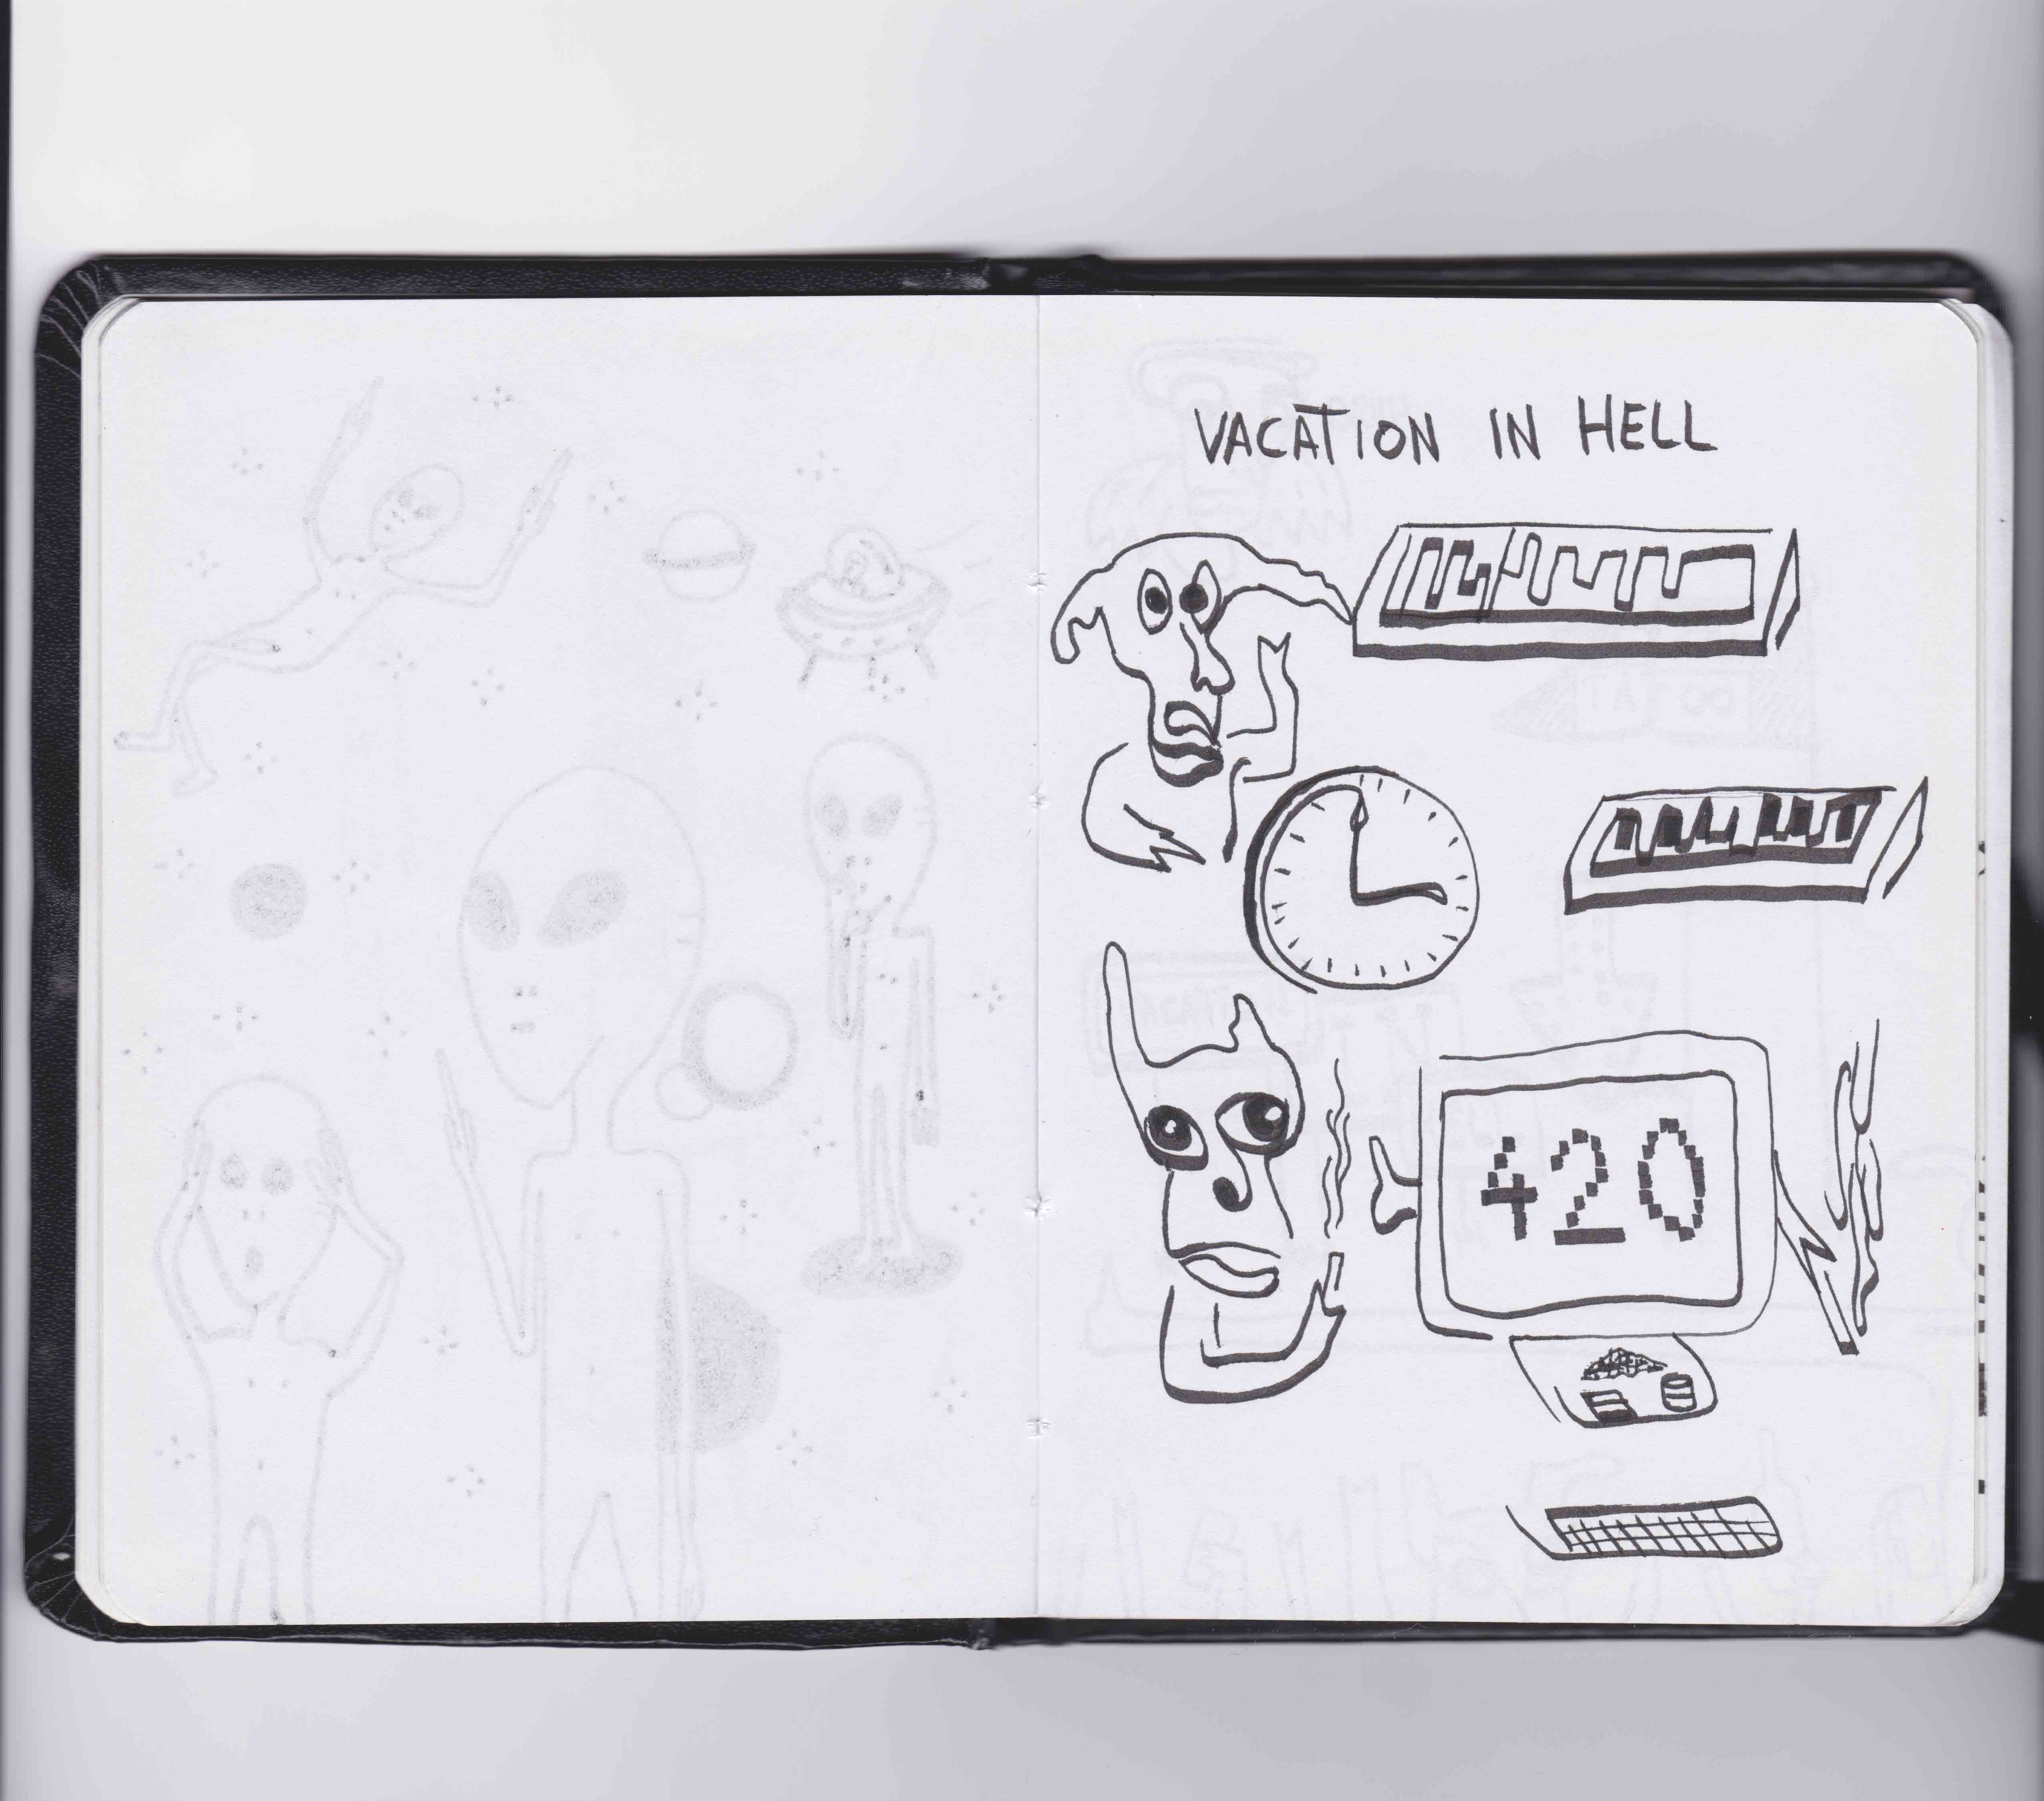 VACATION IN HELL
420